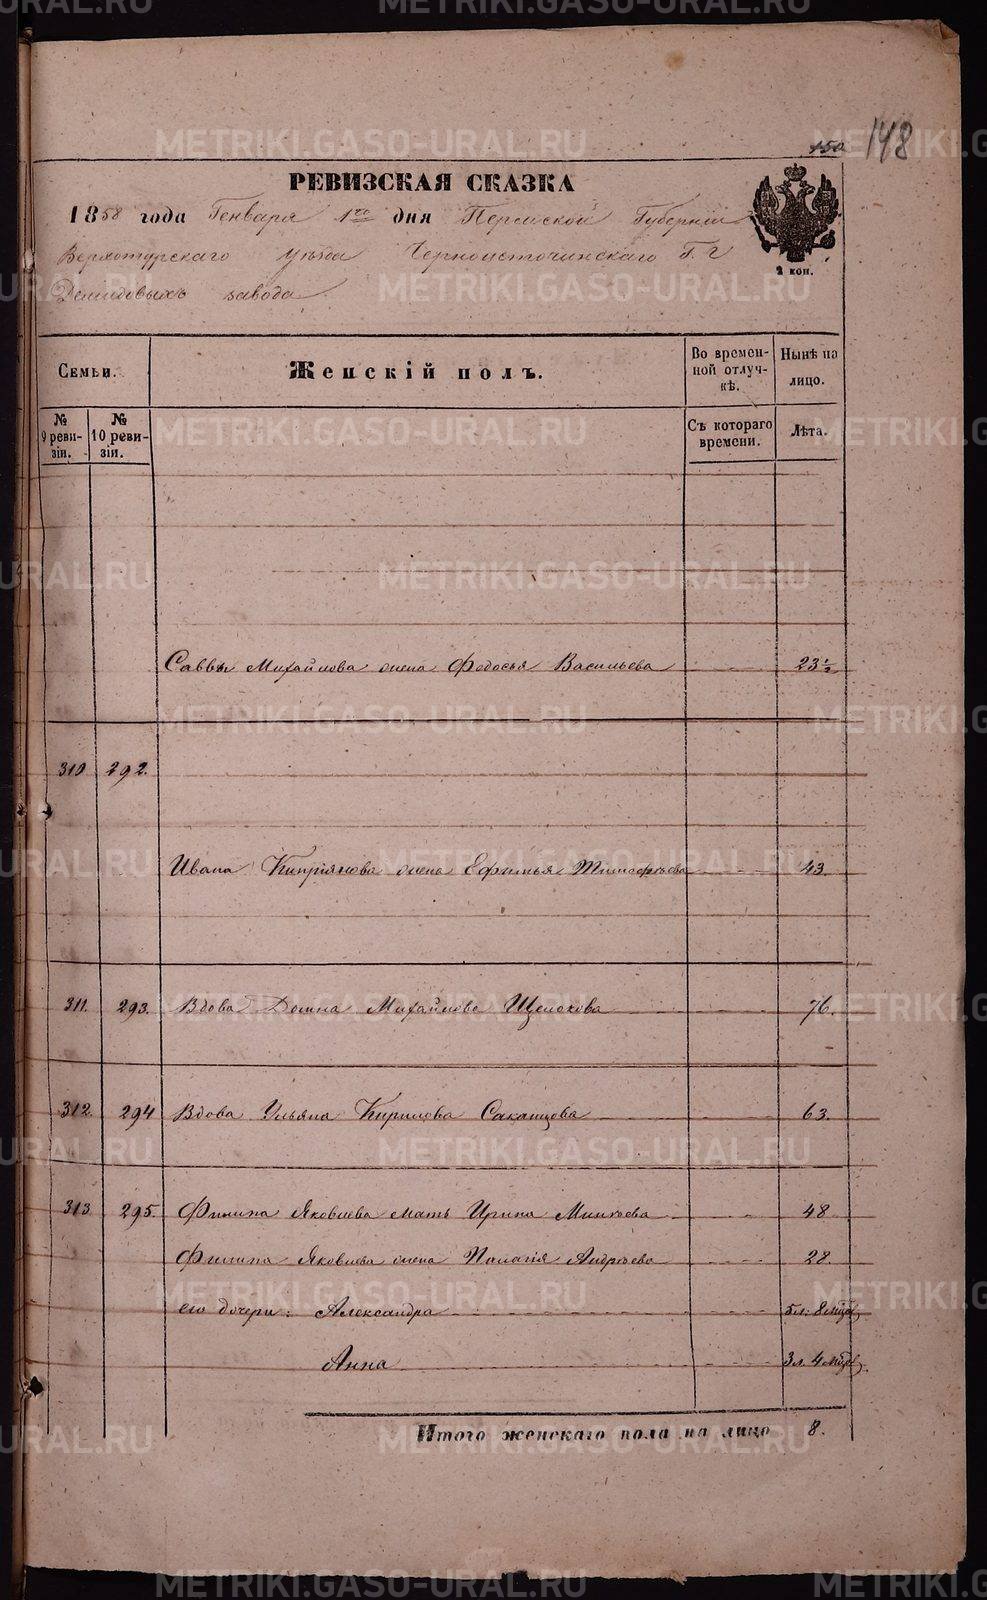 150 148
РЕВИЗСКАЯ СКАЗКА
1858 года Генваря 1го дня Пермской Губерніи
Верхотурскаго уѣзда Черноисточинскаго Г. г
Демидовыхъ завода
2 коп.
Семьи. Женскій полъ. Во временной отлучкѣ. Нынѣ на лицо.
№ 9 ревизіи. № 10 ревизіи. Съ котораго времени. Лѣта.
Саввы Михайлова жена Федосья Васильева 23 1/2
310 292.
Ивана Кипріянова жена Ефимья Тимофѣева 43.
311. 293. Вдова Домна Михайлова Щелокова 76.
312. 294 Вдова Ульяна Кирилова Саканцова 63.
313. 295. Филипа Яковлева мать Ирина Минѣева 48
Филипа Яковлева жена Палагія Андрѣева 28.
его дочери: Александра 5 л: 8 мцов
Анна 3 л. 4 мцов
Итого женскаго пола на лицо 8.
METRIKI.GASO-URAL.RU